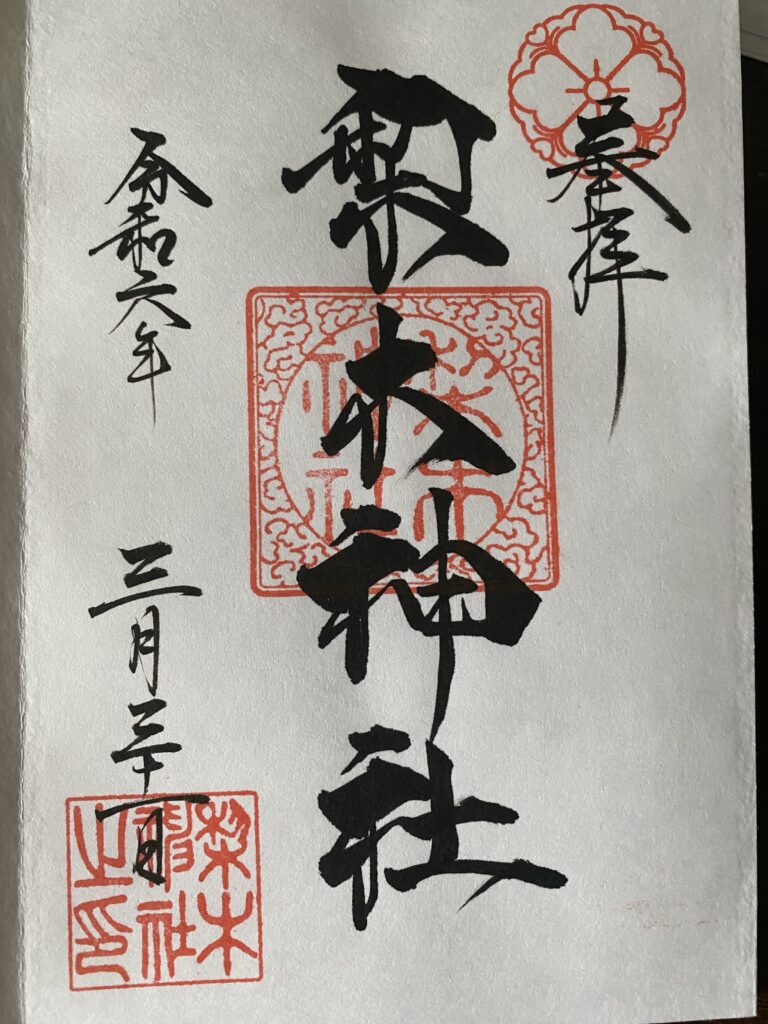 奉拝
梨木神社
梨木
神社
令和六年 三月三十一日
梨木
神社
之印